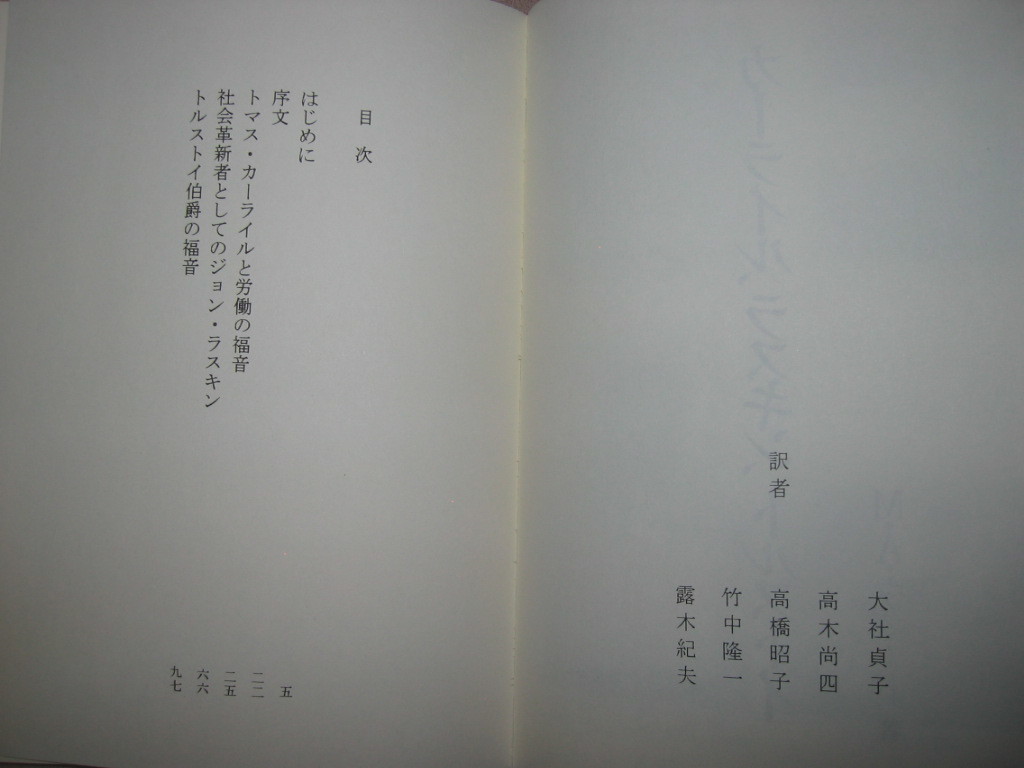 訳者
大社貞子
高木尚四
高橋昭子
竹中隆一
露木紀夫
目次
はじめに 五
序文 二二
トマス・カーライルと労働の福音 二五
社会革新者としてのジョン・ラスキン 六六
トルストイ伯爵の福音 九七